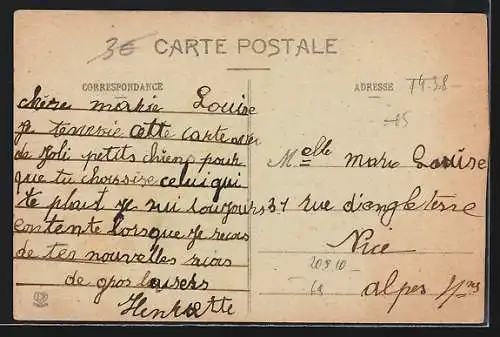 3€
CARTE POSTALE
CORRESPONDANCE
ADRESSE
chère markie Louise
je tenvoie cette carte avec
de Joli petits chiens pour
que tu choissise celui qui
te plait Je sui toujours
contente lorsque Je recois
de tes nouvelles
de gros baisers
Henriette
Melle marc Louise
31 rue d'angleterre
Nice
alpes